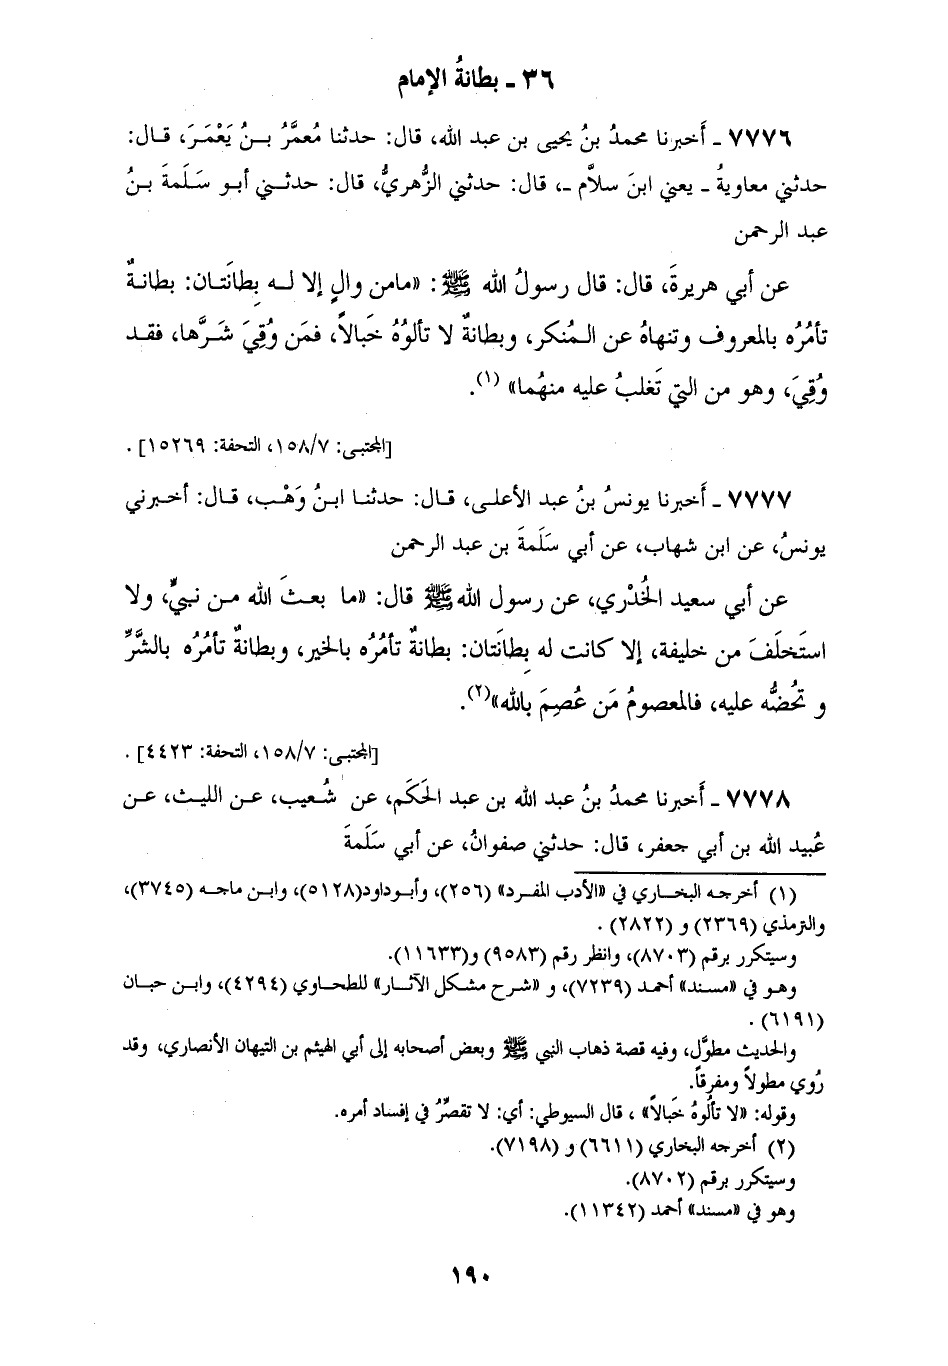 ٣٦ ـ بطانةُ الإمام
٧٧٧٦ ـ أَخبرنا محمدُ بنُ يحيى بن عبد الله، قال: حدثنا مُعمَّرُ بـنُ يَعْمَرَ، قـال:
حدثني معاويةُ ـ يعني ابنَ سلاَّم ـ، قال: حدثني الزُّهريُّ، قال: حدثـني أبـو سَـلَمةَ بـنُ
عبد الرحمن
عن أبي هريرةَ، قال: قال رسولُ الله ﷺ: «مامن والٍ إلا لـه بِطانَتـان: بطانـةٌ
تأمُرُه بالمعروف وتنهاهُ عن الـمُنكر، وبطانةٌ لا تألُوُهُ خَبالاً، فمَن وُقِيَ شَـرَّها، فقـد
وُقِيَ، وهو من التي تَغلبُ عليه منهُما» (١).
[المجتبى: ١٥٨/٧، التحفة: ١٥٢٦٩] .
٧٧٧٧ ـ أَخبرنا يونسُ بنُ عبد الأعلـى، قـال: حدثنـا ابـنُ وَهْـب، قـال: أخـبرني
يونسُ، عن ابن شهاب، عن أبي سَلَمةَ بن عبد الرحمن
عن أبي سعيد الخُدْري، عن رسول الله ﷺ قال: «ما بعـثَ الله مـن نبيٍّ، ولا
استَخلَفَ من خليفة، إلا كانت له بِطانَتان: بطانةٌ تأمُرُه بالخير، وبطانةٌ تأمُرُه بالشَّرِّ
و تَحُضُّه عليه، فالمعصومُ مَن عُصِمَ بالله»(٢).
[المجتبى: ١٥٨/٧، التحفة: ٤٤٢٣] .
٧٧٧٨ ـ أَخبرنا محمدُ بنُ عبد الله بن عبد الحَكَم، عن شُعيب، عـن الليـث، عـن
عُبيد الله بن أبي جعفر، قال: حدثني صفوانُ، عن أبي سَلَمةَ
(١) أخرجه البخـاري في «الأدب المفـرد» (٢٥٦)، وأبـوداود(٥١٢٨)، وابـن ماجـه (٣٧٤٥)،
والترمذي (٢٣٦٩) و (٢٨٢٢) .
وسيتكرر برقم (٨٧٠٣)، وانظر رقم (٩٥٨٣) و(١١٦٣٣).
وهـو في «مسـند» أحمـد (٧٢٣٩)، و «شـرح مشـكل الآثـار» للطحـاوي (٤٢٩٤)، وابـن حبـان
(٦١٩١) .
والحديث مطوَّل، وفيه قصة ذهاب النبي ﷺ وبعض أصحابه إلى أبي الهيثم بن التيهان الأنصاري، وقد
رُوي مطولاً ومفرقاً.
وقوله: «لا تألُوهُ خَبالاً» ، قال السيوطي: أي: لا تقصِّرُ في إفساد أمره.
(٢) أخرجه البخاري (٦٦١١) و (٧١٩٨).
وسيتكرر برقم (٨٧٠٢).
وهو في «مسند» أحمد (١١٣٤٢).
١٩٠